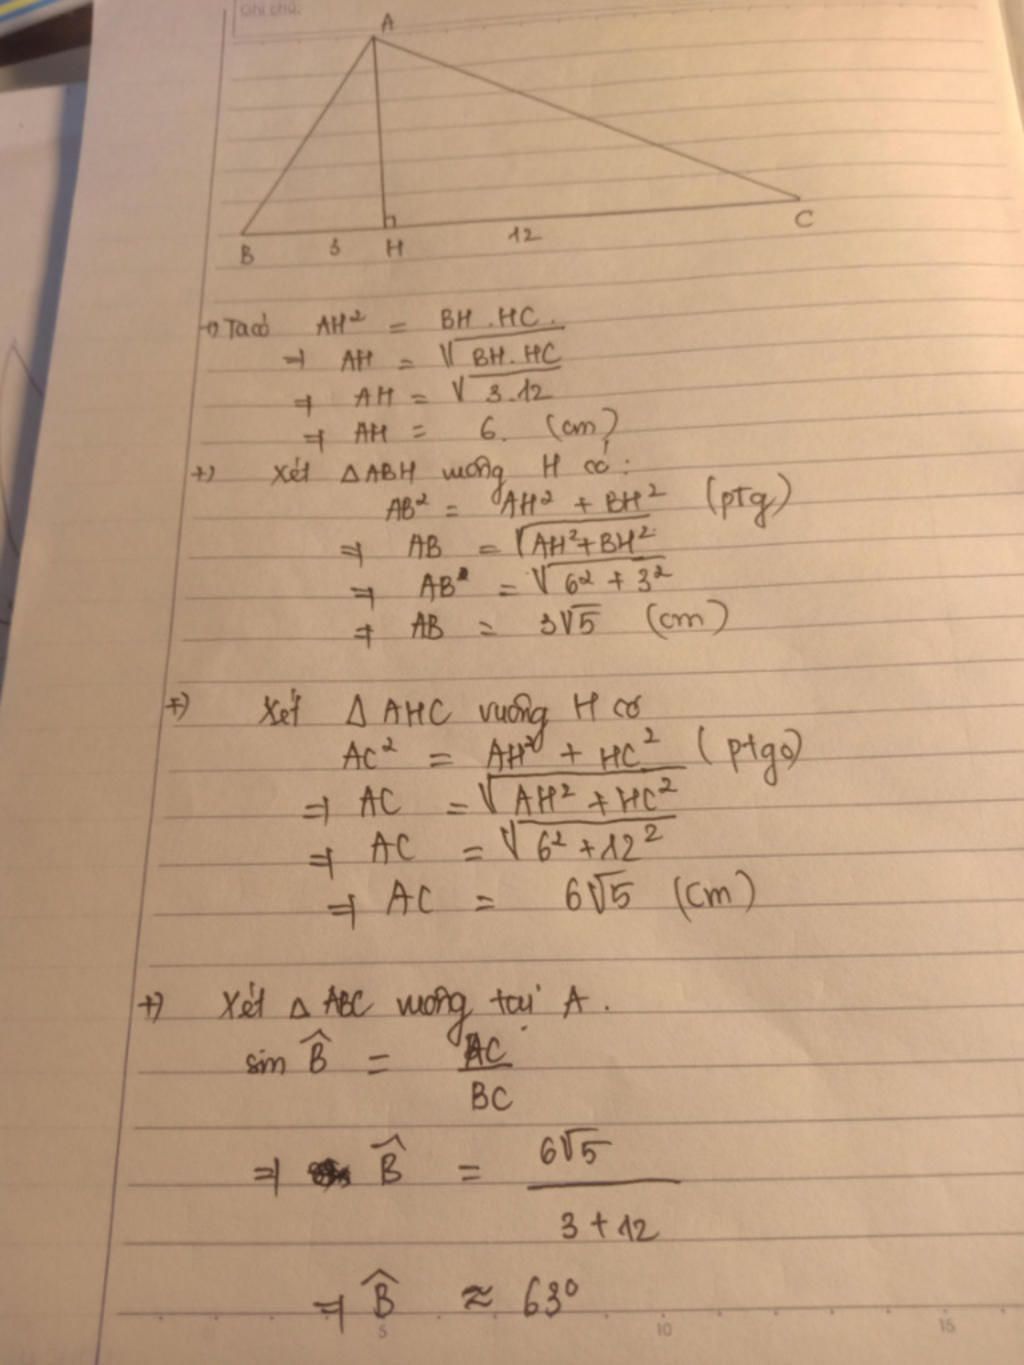 Ghi chú:
A
B 3 H 12 C
+) Ta có AH² = BH . HC.
⇒ AH = √BH. HC
⇒ AH = √3.12
⇒ AH = 6. (cm)
+) Xét △ABH vuông H có:
AB² = AH² + BH² (ptg)
⇒ AB = √AH²+BH²
⇒ AB = √6² + 3²
⇒ AB = 3√5 (cm)
+) Xét △ AHC vuông H có
AC² = AH² + HC² (ptgo)
⇒ AC = √AH² + HC²
⇒ AC = √6² + 12²
⇒ AC = 6√5 (cm)
+) Xét △ ABC vuông tại A.
sin B̂ = AC
BC
⇒ B̂ = 6√5
3 + 12
⇒ B̂ ≈ 63°
5 10 15